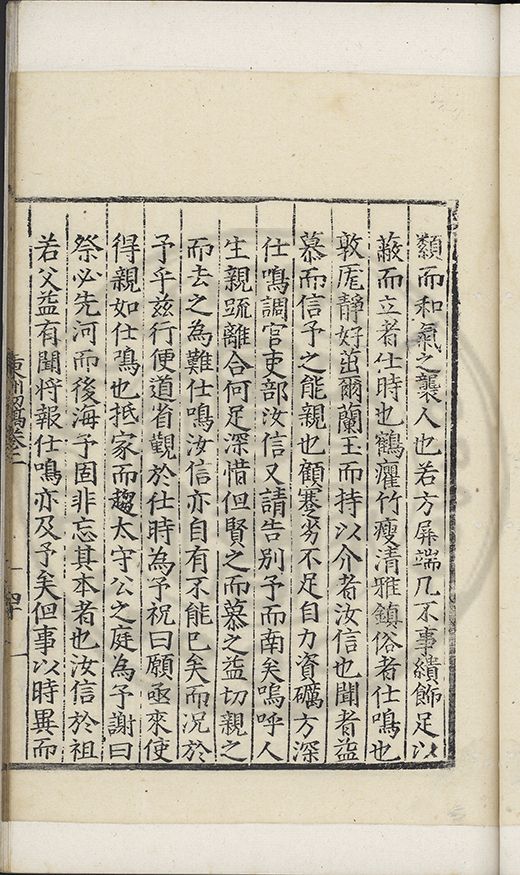 纇而和氣之襲人也若方屏端几不事繢飾足以
蔽而立者仕時也鶴癯竹瘦清雅鎮俗者仕鳴也
敦厖靜好茁爾蘭玉而持以介者汝信也聞者益
慕而信予之能親也顧蹇劣不足自力資礪方深
仕鳴調官吏部汝信又請告別予而南矣嗚呼人
生親疏離合何足深惜但賢之而慕之益切親之
而去之為難仕鳴汝信亦自有不能已矣而況於
予乎茲行便道省觀於仕時為予祝曰願亟來使
得親如仕鳴也抵家而趨太守公之庭為予謝曰
祭必先河而後海予固非忘其本者也汝信於祖
若父益有聞將報仕鳴亦及予矣但事以時異而
卷二